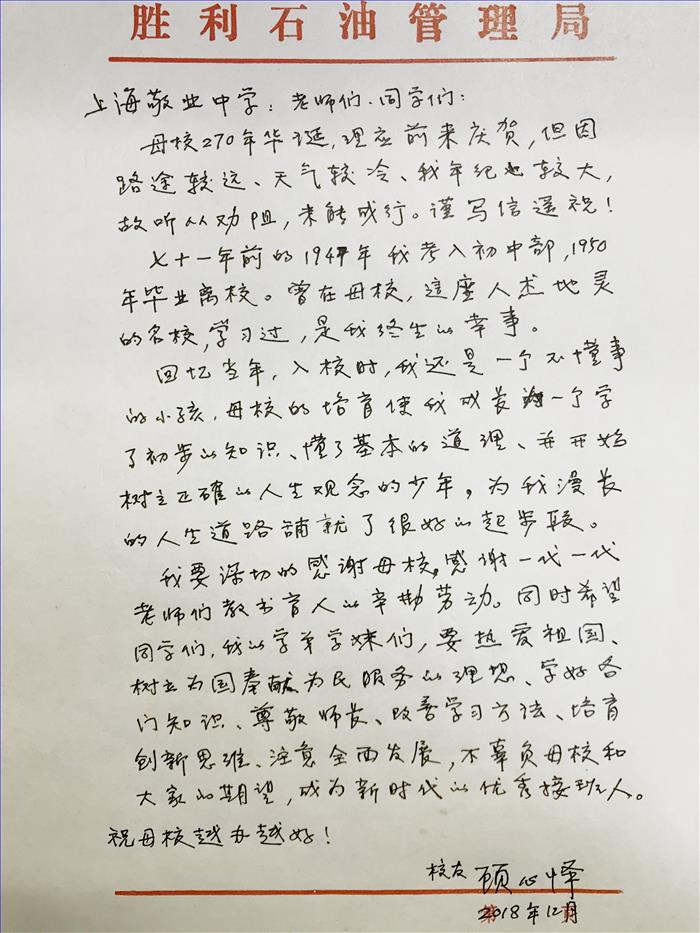 胜利石油管理局
上海敬业中学：老师们、同学们：
母校270年华诞，理应前来庆贺，但因
路途较远、天气较冷、我年纪也较大，
故听从劝阻，未能成行。谨写信遥祝！
七十一年前的1947年我考入初中部，1950
年毕业离校。曾在母校，这座人杰地灵
的名校，学习过，是我终生的幸事。
回忆当年，入校时，我还是一个不懂事
的小孩，母校的培育使我成长为一个学
了初步的知识、懂了基本的道理、并开始
树立正確的人生观念的少年，为我漫长
的人生道路铺就了很好的起步段。
我要深切的感谢母校，感谢一代一代
老师们教书育人的辛勤劳动。同时希望
同学们，我的学弟学妹们，要热爱祖国、
树立为国奉献为民服务的理想、学好各
门知识、尊敬师长、改善学习方法、培育
创新思维、注意全面发展，不辜负母校和
大家的期望，成为新时代的优秀接班人。
祝母校越办越好！
校友 顾心怿
2018年12月